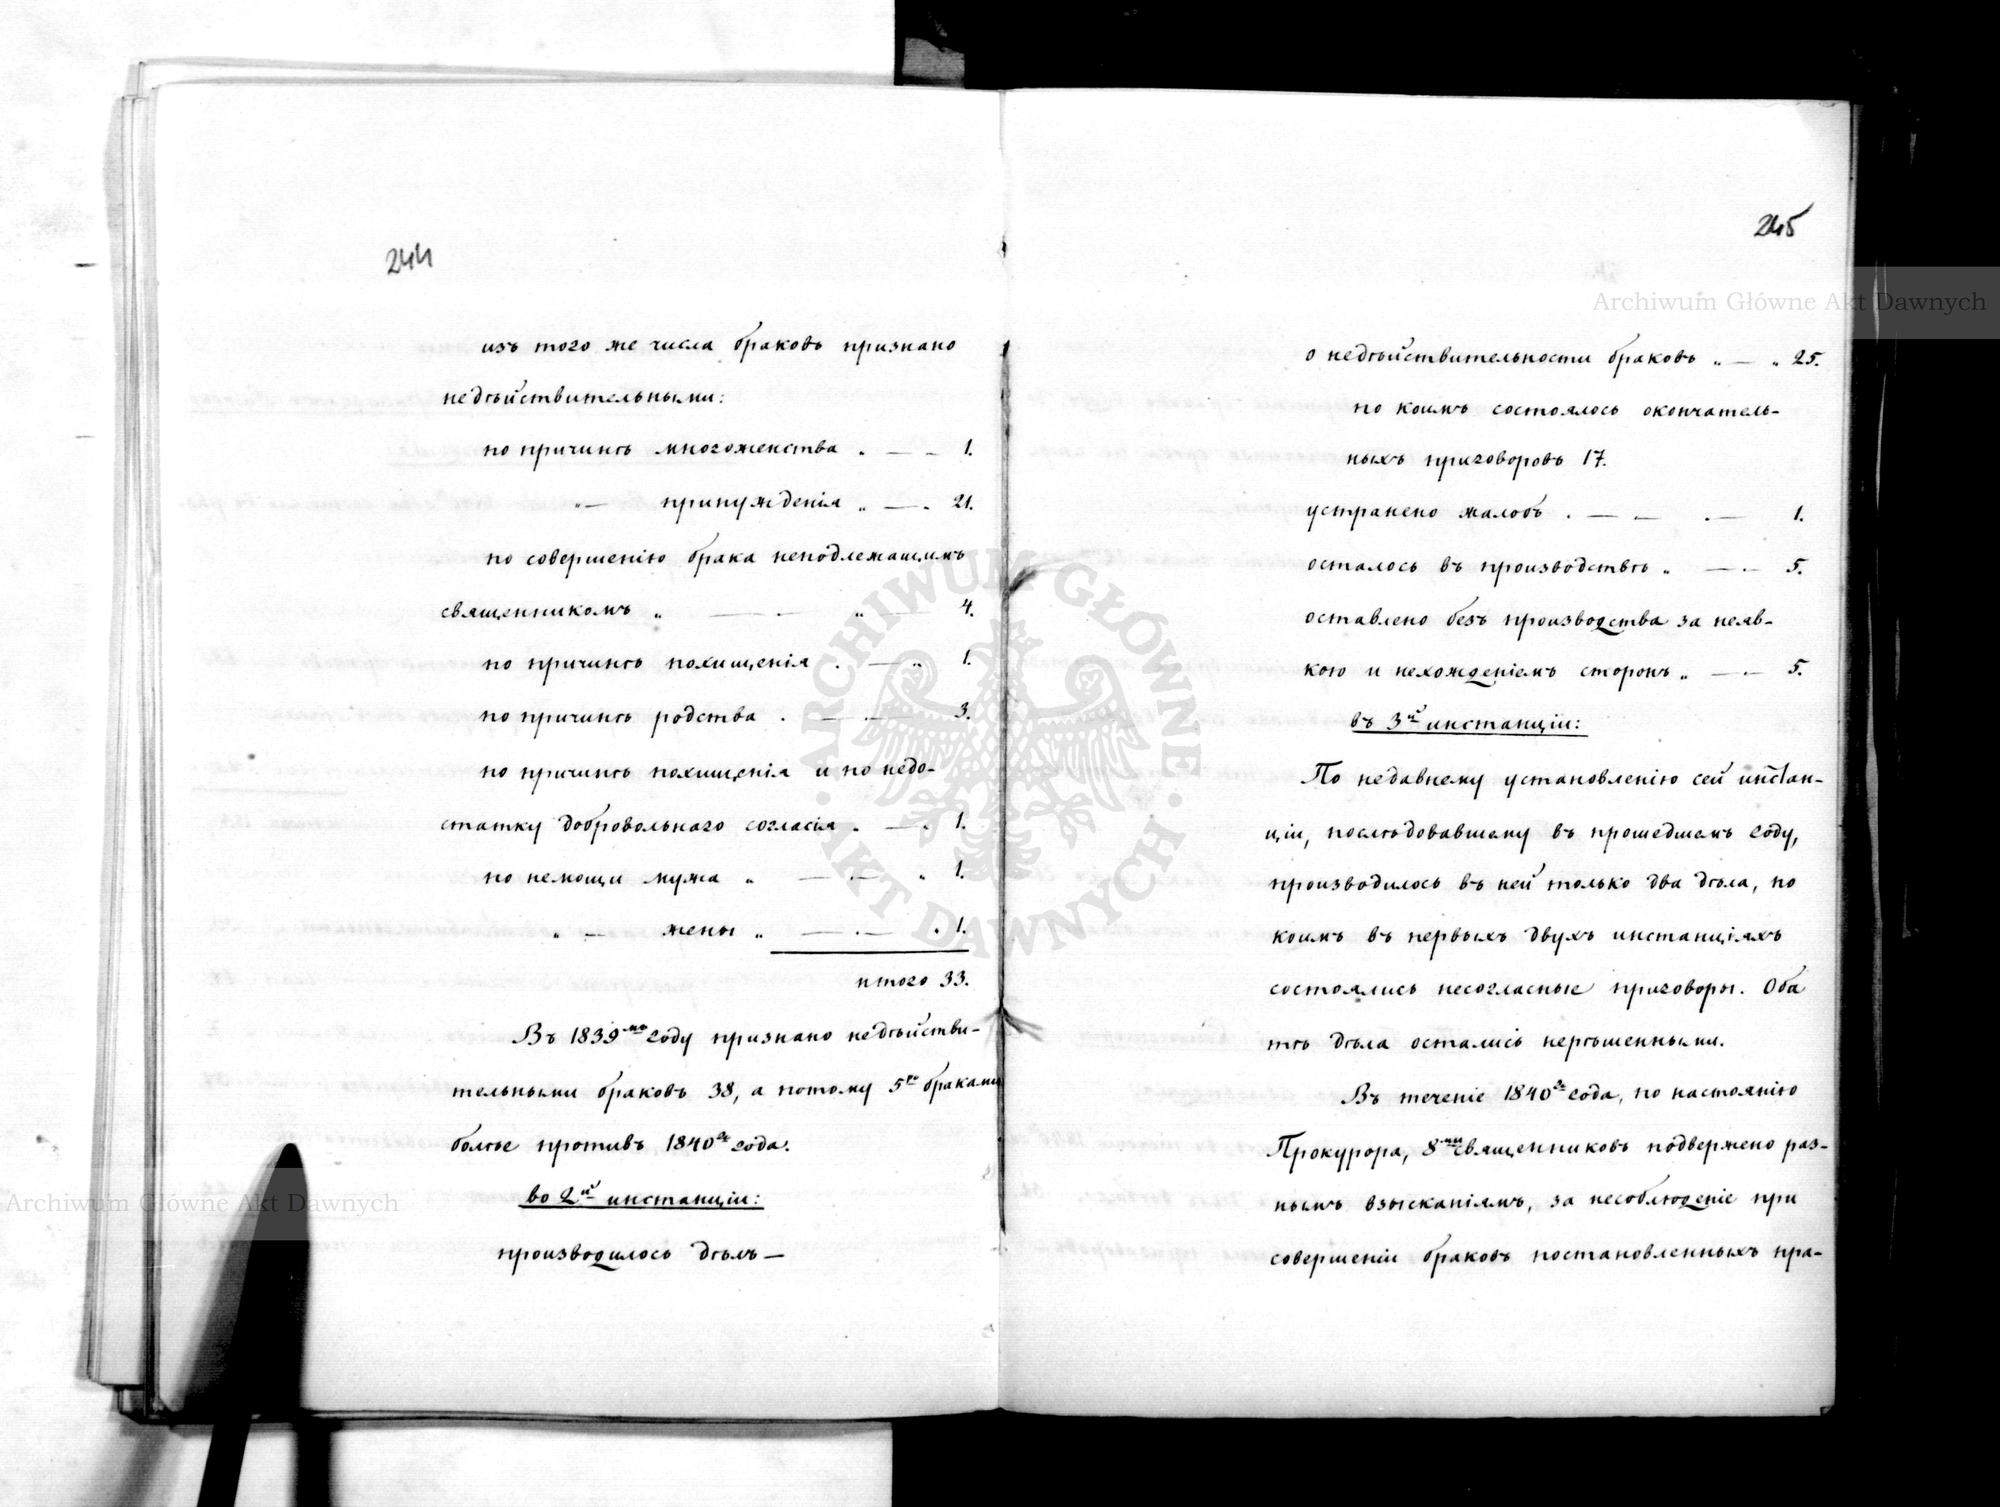 244
изъ того же числа браковъ признано
недѣйствительными:
по причинѣ многоженства . — – 1.
„ — принужденія „ — . 21.
по совершенію брака неподлежащимъ
священникомъ „ — . — „ — 4.
по причинѣ похищенія . — „ 1.
по причинѣ родства . — . — 3.
по причинѣ похищенія и по недо-
статку добровольнаго согласія . — . 1.
по немощи мужа „ — . — „ 1.
„ — жены „ — . — . 1.
итого 33.
Въ 1839мъ году признано недѣйстви-
тельными браковъ 38, а потому 5ю браками
болѣе противъ 1840го года.
во 2й инстанціи:
производилось дѣлъ —
245
о недѣйствительности браковъ „ — „ 25.
по коимъ состоялось окончатель-
ныхъ приговоровъ 17.
устранено жалобъ . — — . — 1.
осталось въ производствѣ „ — . — 5.
оставлено безъ производства за неяв-
кою и нехожденіемъ сторонъ „ — . — 5.
въ 3й инстанціи:
По недавнему установленію сей инстан-
ціи, послѣдовавшему въ прошедшемъ году,
производилось въ ней только два дѣла, по
коимъ въ первыхъ двухъ инстанціяхъ
состоялись несогласные приговоры. Оба
тѣ дѣла остались нерѣшенными.
Въ теченіе 1840го года, по настоянію
Прокурора, 8ми священниковъ подвержено раз-
нымъ взысканіямъ, за несоблюденіе при
совершеніи браковъ постановленныхъ пра-
Archiwum Główne Akt Dawnych
Archiwum Główne Akt Dawnych
ARCHIWUM GŁÓWNE
AKT DAWNYCH